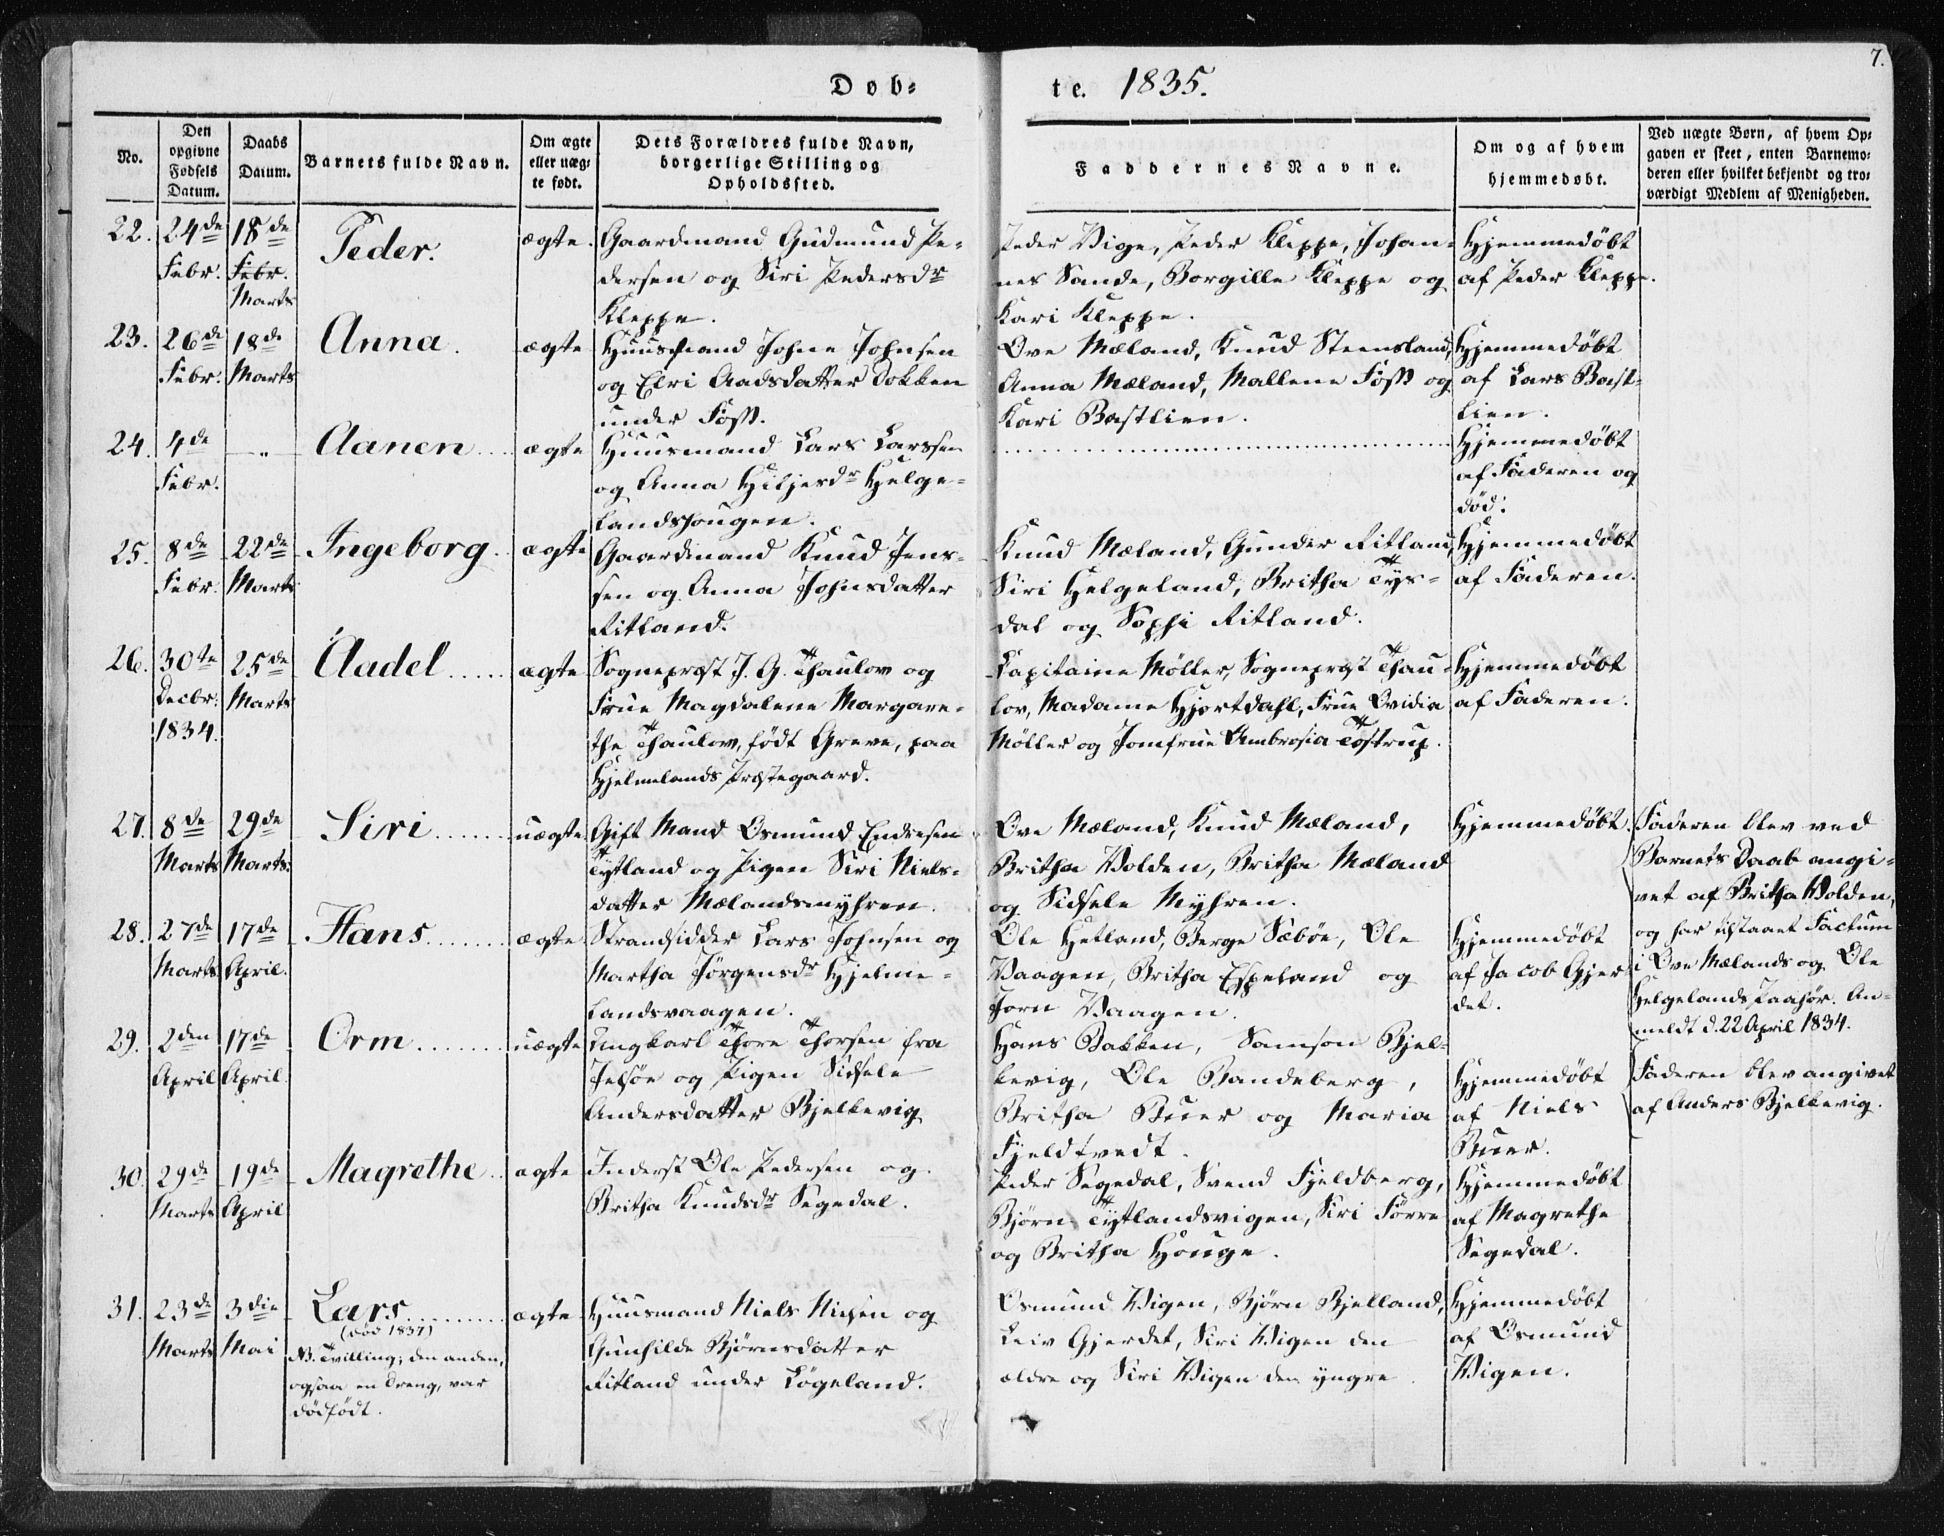 7.
Døb-
te. 1835.
No.
Den opgivne Fødsels Datum.
Daabs Datum.
Barnets fulde Navn.
Om ægte eller uægte født.
Dets Forældres fulde Navn, borgerlige Stilling og Opholdssted.
Faddernes Navne.
Om og af hvem hjemmedøbt.
Ved uægte Børn, af hvem Opgaven er skeet, enten Barnemoderen eller hvilket bekjendt og troværdigt Medlem af Menigheden.
22.
24de
Febr.
18de
Febr.
Marts
Peder.
ægte.
Gaardmand Gudmund Pe-
dersen og Siri Pedersdr
Kleppe.
Peder Vige, Peder Kleppe, Johan-
nes Sande, Borgille Kleppe og
Kari Kleppe.
Hjemmedøbt
af Peder Kleppe.
23.
26de
Febr.
18de
Marts
Anna.
ægte
Huusmand Johne Johnsen
og Elri Aadsdatter Dokken
under Foss.
Ove Mæland, Knud Steensland,
Anna Mæland, Mallene Foss og
Kari Bastlien.
Hjemmedøbt
af Lars Bast-
lien.
24.
4de
Febr.
— " —
Aanen
ægte
Huusmand Lars Larssen
og Anna Hiljesdr Helge-
landshougen.
Hjemmedøbt
af Faderen og
død.
25.
8de
Febr.
22de
Marts
Ingeborg
ægte
Gaardmand Knud Jens-
sen og Anna Johnsdatter
Ritland.
Knud Mæland, Gunder Ritland,
Siri Helgeland, Britha Tys-
dal og Sophi Ritland.
Hjemmedøbt
af Faderen.
26.
30te
Decbr.
1834.
25de
Marts
Aadel
ægte
Sognepræst J. G. Thaulow og
Frue Magdalene Margare-
the Thaulow, født Greve, paa
Hjelmelands Præstegaard.
Kapitaine Møller, Sognepræst Thau-
low, Madame Hjortdahl, Frue Ovidia
Møller og Jomfrue Ambrosia Tostrup.
Hjemmedøbt
af Faderen.
27.
8de
Marts
29de
Marts.
Siri
uægte
Gift Mand Osmund Endresen
Tytland og Pigen Siri Niels-
datter Mælandsmyhren.
Ove Mæland, Knud Mæland,
Britha Volden, Britha Mæland
og Sidsele Myhren.
Hjemmedøbt
Faderen blev ved
Barnets Daab angi-
vet af Britha Volden,
og har tilstaaet Factum
i Ove Mælands og Ole
Helgelands Paahør. An-
meldt d. 22 April 1834.
28.
27de
Marts
17de
April.
Hans
ægte
Strandsidder Lars Johnsen og
Martha Jørgensdr Hjelme-
landsvaagen.
Ole Hetland, Berge Sæbøe, Ole
Vaagen, Britha Espeland og
Jorn Vaagen.
Hjemmedøbt
af Jacob Gjer-
det.
29.
2den
April
17de
April.
Orm
uægte
Ungkarl Thore Thorsen fra
Jelsøe og Pigen Sidsele
Andersdatter Bjelkevig
Hans Bakken, Samson Bjel-
kevig, Ole Bandeberg,
Britha Buer og Maria
Fjeldtvedt.
Hjemmedøbt
af Niels
Buer.
Faderen blev angivet
af Anders Bjelkevig.
30.
29de
Marts
19de
April
Magrethe
ægte
Inderst Ole Pedersen og
Britha Knudsdr Segedal.
Peder Segedal, Svend Fjeldberg,
Bjørn Tytlandsvigen, Siri Førre
og Britha Houge.
Hjemmedøbt
af Magrethe
Segedal.
31.
23de
Marts
3die
Mai
Lars
(død 1837)
NB. Tvilling; den anden,
ogsaa en Dreng, var
dødfødt.
ægte
Huusmand Niels Nielsen og
Gunhilde Bjørnsdatter
Ritland under Løgeland.
Osmund Vigen, Bjørn Bjelland,
Leiv Gjerdet, Siri Vigen den
ældre og Siri Vigen den yngre
Hjemmedøbt
af Osmund
Vigen.